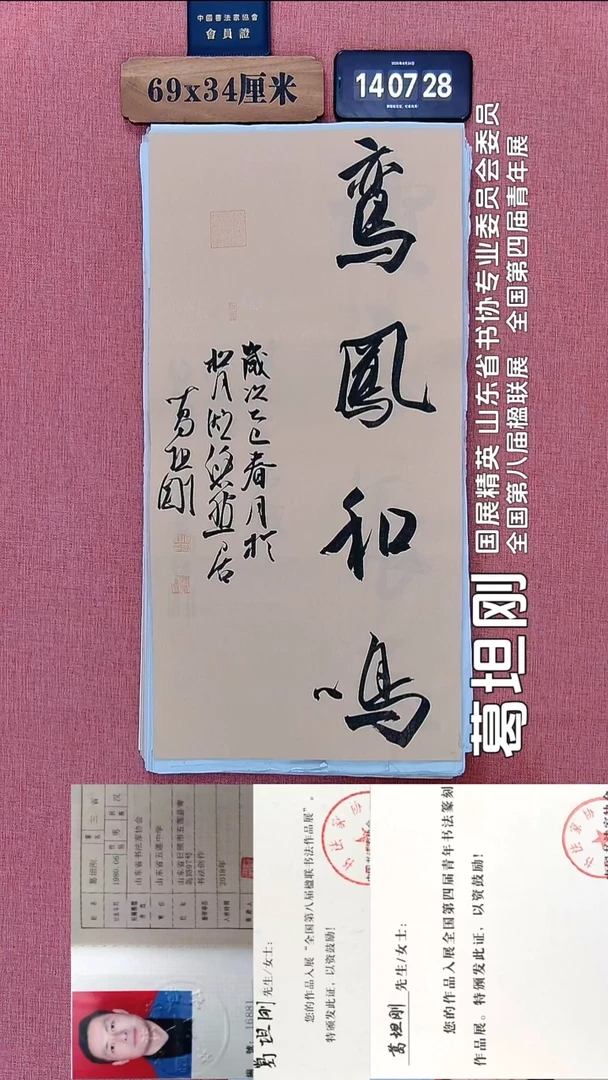 中國書法家協會
會員證
69x34厘米
14 07 28
鸾鳳和鳴
歲次乙巳春月於
葛坦刚
国展精英 山东省书协专业委员会委员
全国第八届楹联展 全国第四届青年展
葛坦刚
葛坦刚 先生/女士：
您的作品入展“全国第八届楹联书法作品展”。
特颁发此证，以资鼓励！
葛坦刚 先生/女士：
您的作品入展全国第四届青年书法篆刻
作品展。特颁发此证，以资鼓励！